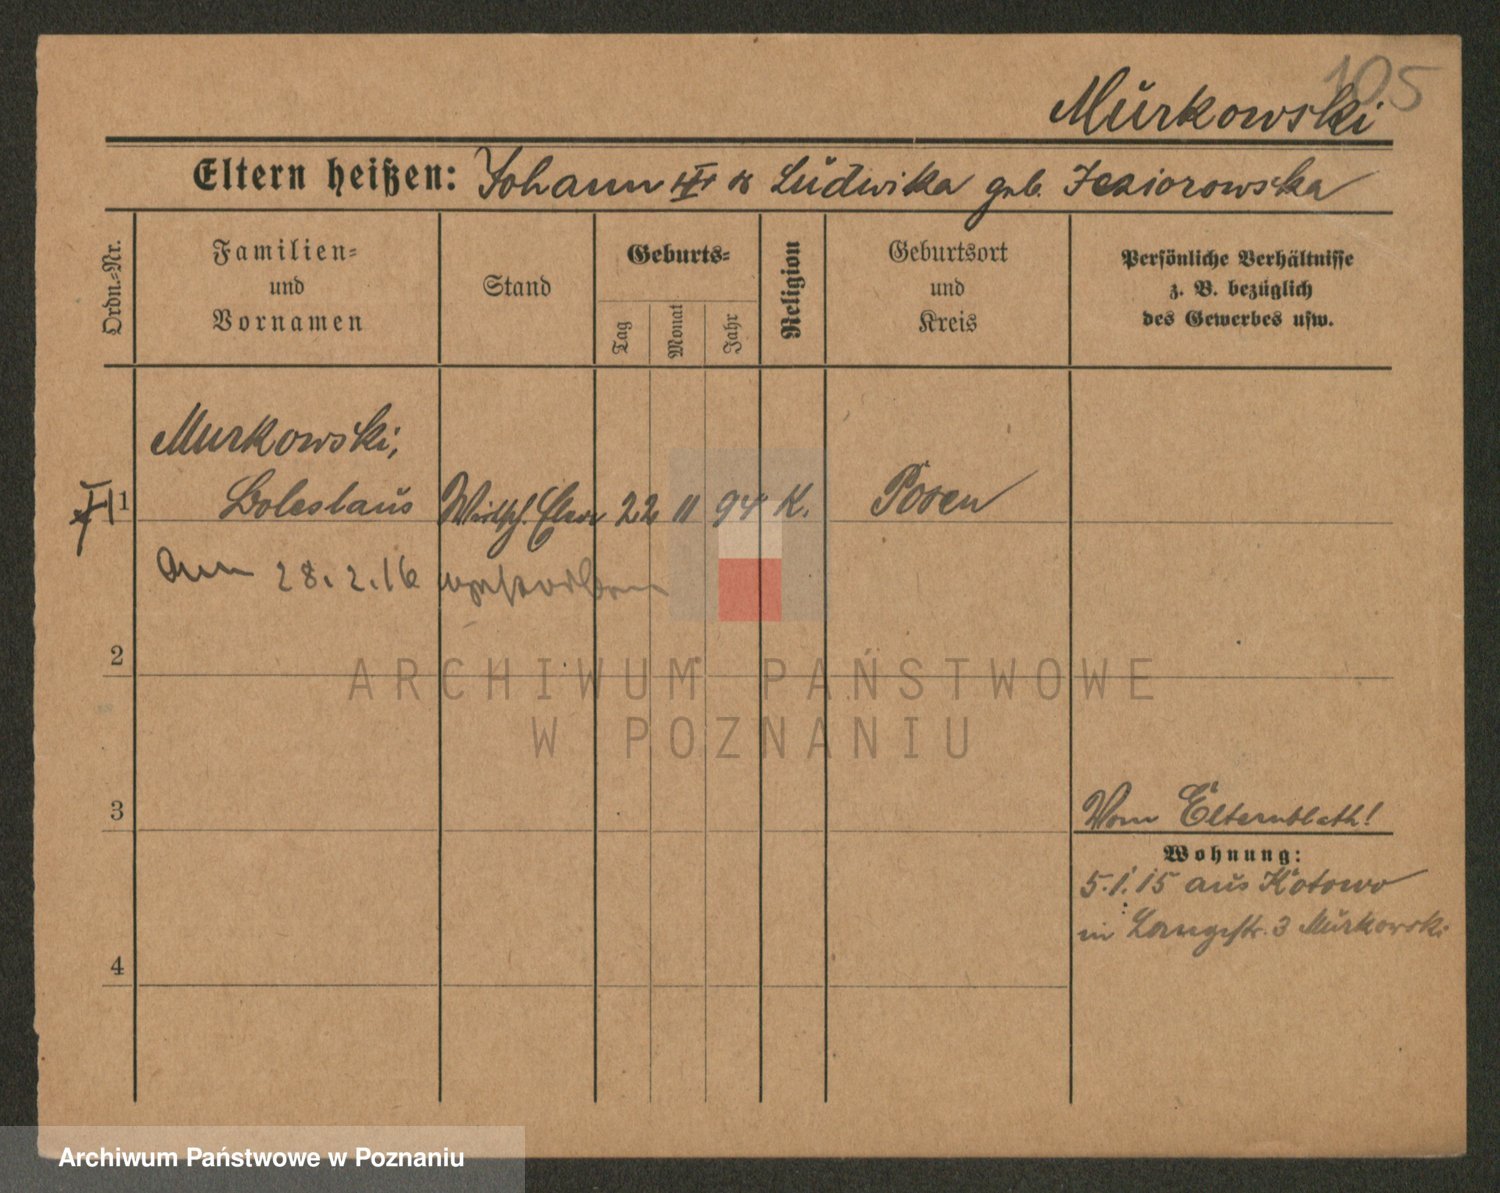 105
Murkowski
Eltern heißen: Johann III & Ludwika geb. Jeziorowska
Ordn.-Nr.
Familien-
und
Vornamen
Stand
Geburts-
Tag
Monat
Jahr
Religion
Geburtsort
und
Kreis
Persönliche Verhältnisse
z. B. bezüglich
des Gewerbes usw.
Murkowski,
1 Boleslaus Wirtsch. Eleve 22 11 94 K. Posen
Am 28.2.16 verstorben
2
ARCHIWUM PAŃSTWOWE
W POZNANIU
3
Vom Elternblatt!
Wohnung:
5.1.15 aus Kotowo
in Langestr. 3 Murkowski
4
Archiwum Państwowe w Poznaniu